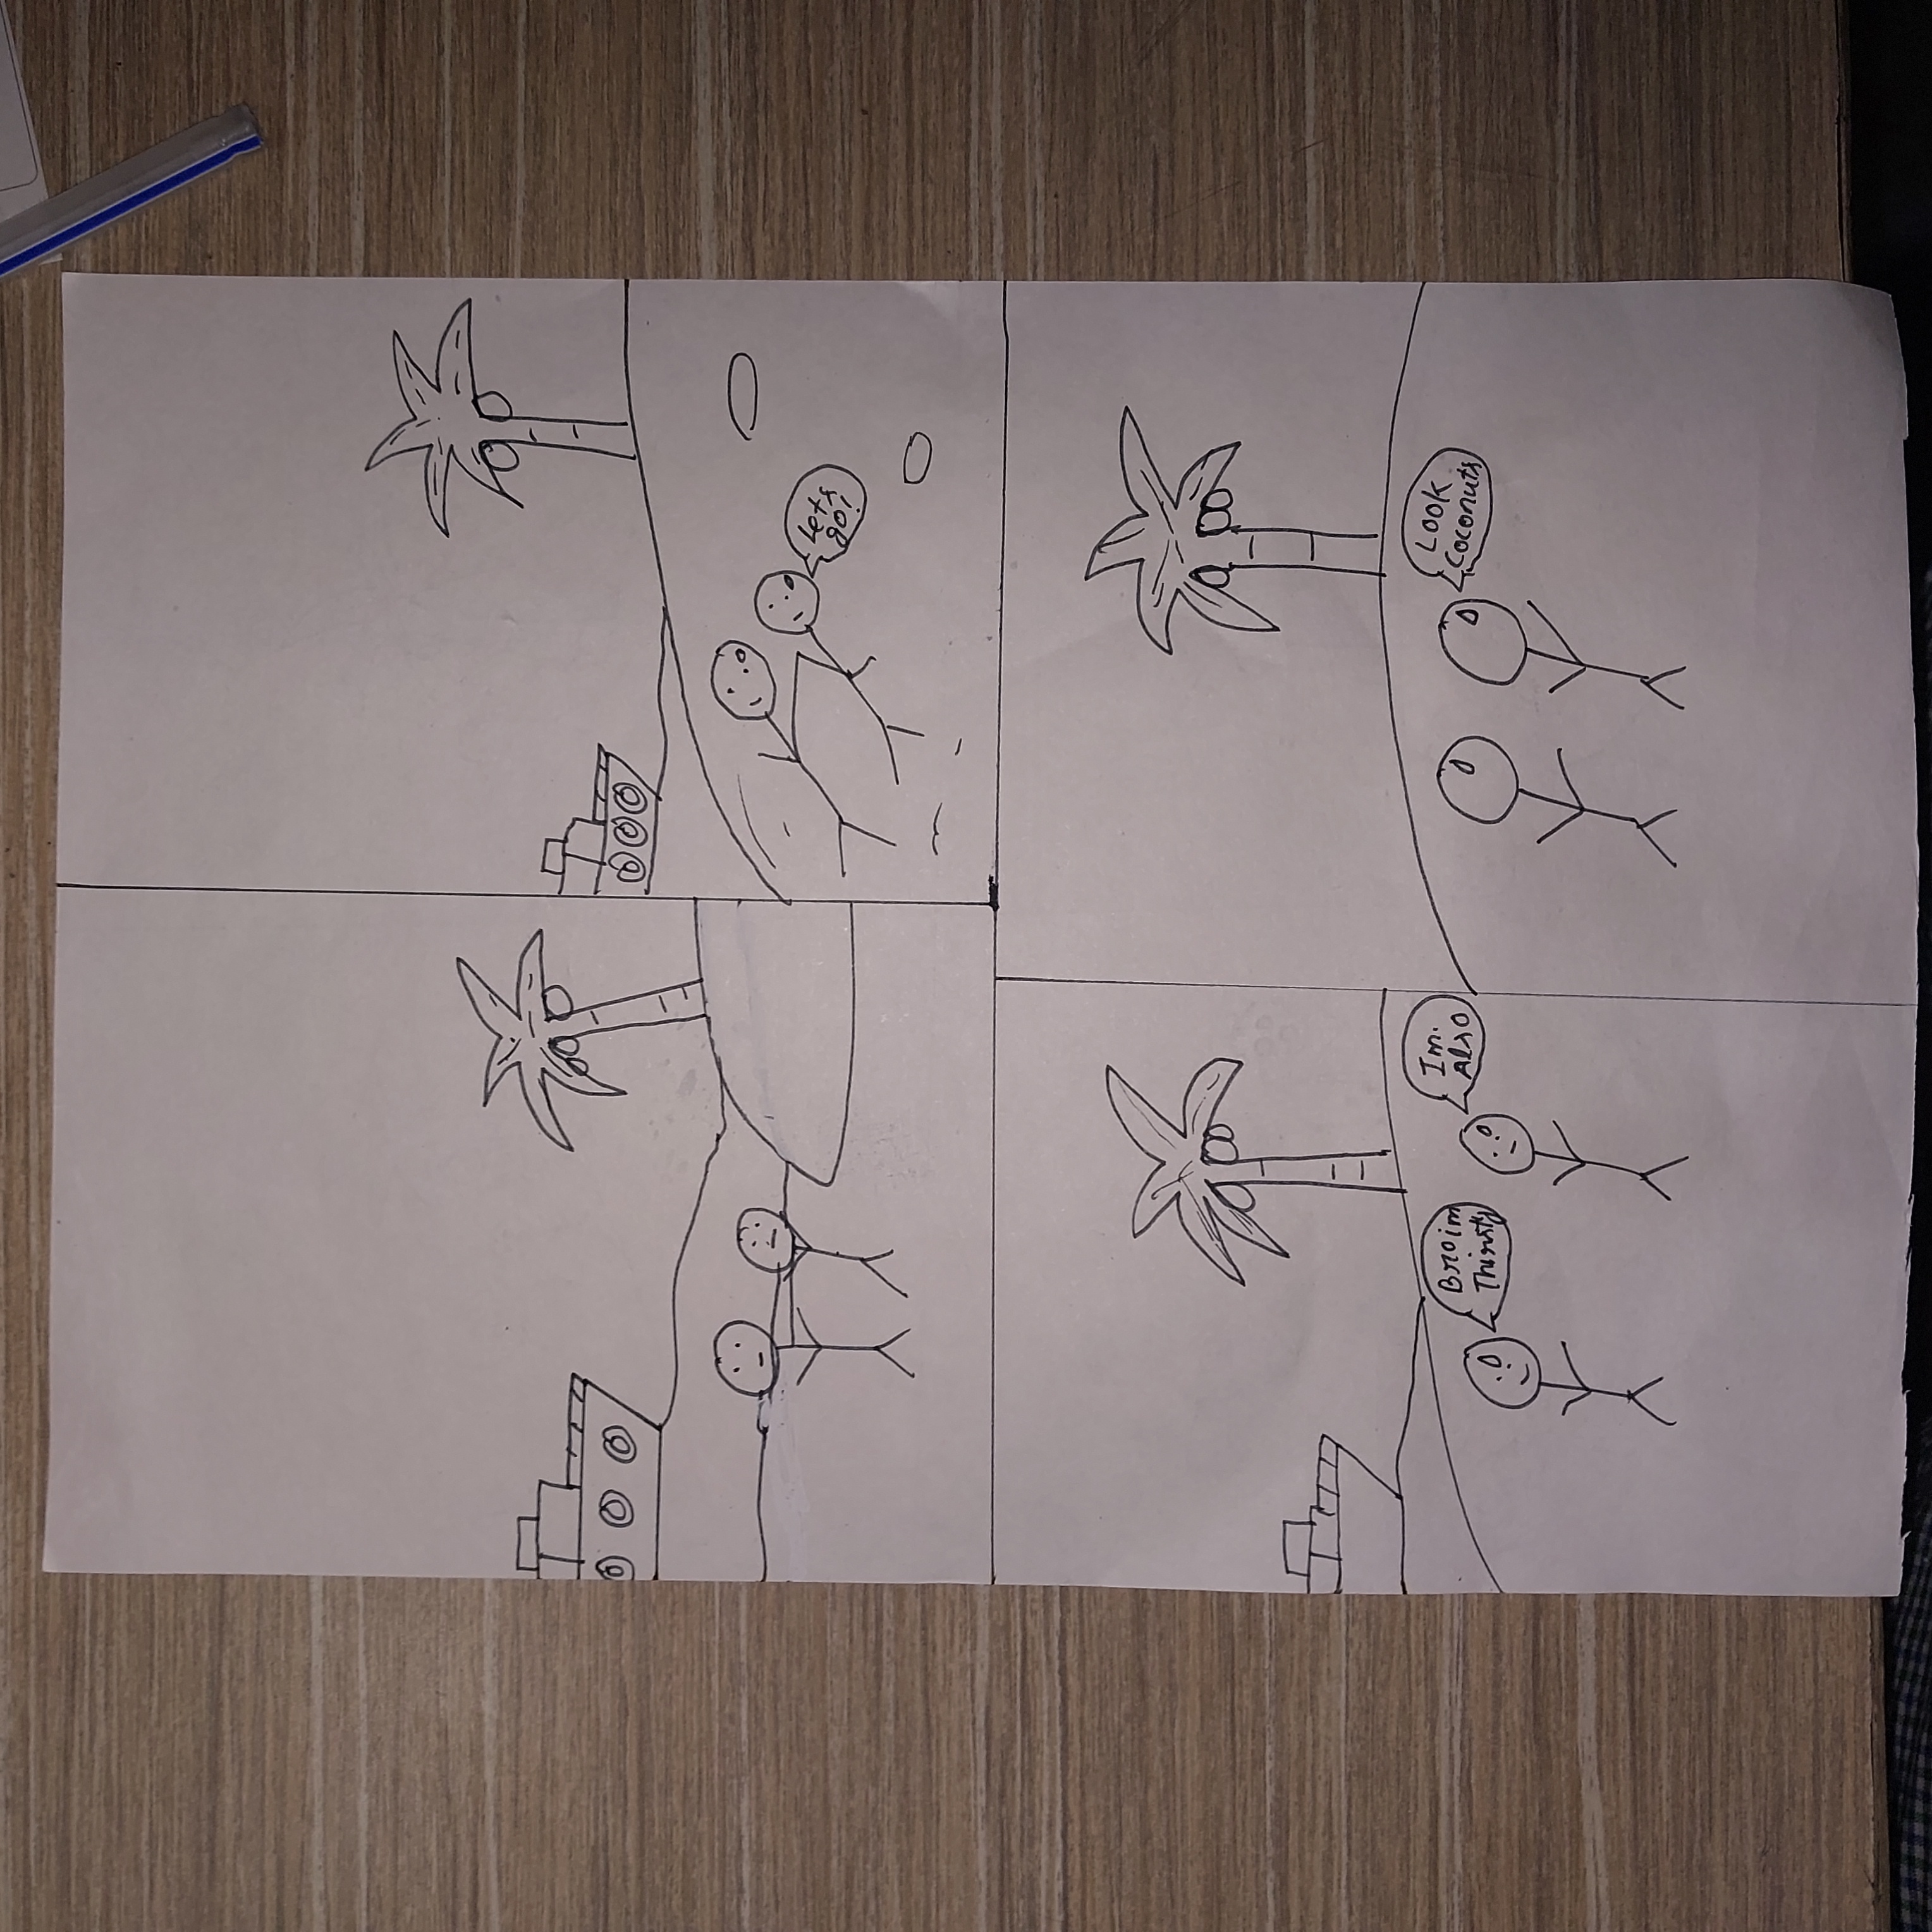 Lets
go!
Bro im
Thirsty
Im.
Also
Look
Coconuts